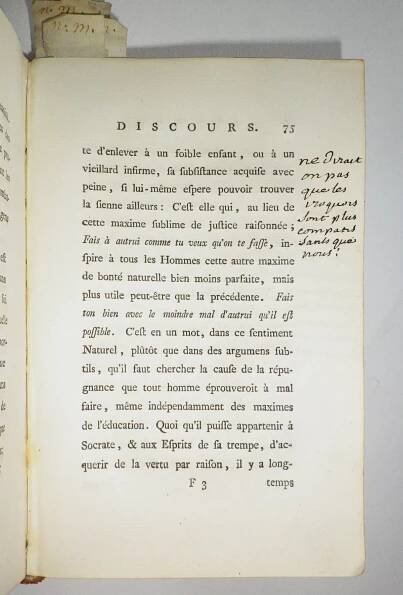 n. M.
n. M. n
DISCOURS. 75
te d'enlever à un foible enfant, ou à un
vieillard infirme, sa subsistance acquise avec
peine, si lui-même espere pouvoir trouver
la sienne ailleurs : C'est elle qui, au lieu de
cette maxime sublime de justice raisonnée ;
Fais à autrui comme tu veux qu'on te fasse, in-
spire à tous les Hommes cette autre maxime
de bonté naturelle bien moins parfaite, mais
plus utile peut-être que la précédente. Fais
ton bien avec le moindre mal d'autrui qu'il est
possible. C'est en un mot, dans ce sentiment
Naturel, plûtôt que dans des argumens sub-
tils, qu'il faut chercher la cause de la répu-
gnance que tout homme éprouveroit à mal
faire, même indépendamment des maximes
de l'éducation. Quoi qu'il puisse appartenir à
Socrate, & aux Esprits de sa trempe, d'ac-
querir de la vertu par raison, il y a long-
F 3 temps
ne dirait
on pas
que les
iroquois
sont plus
compatis
sants que
nous!